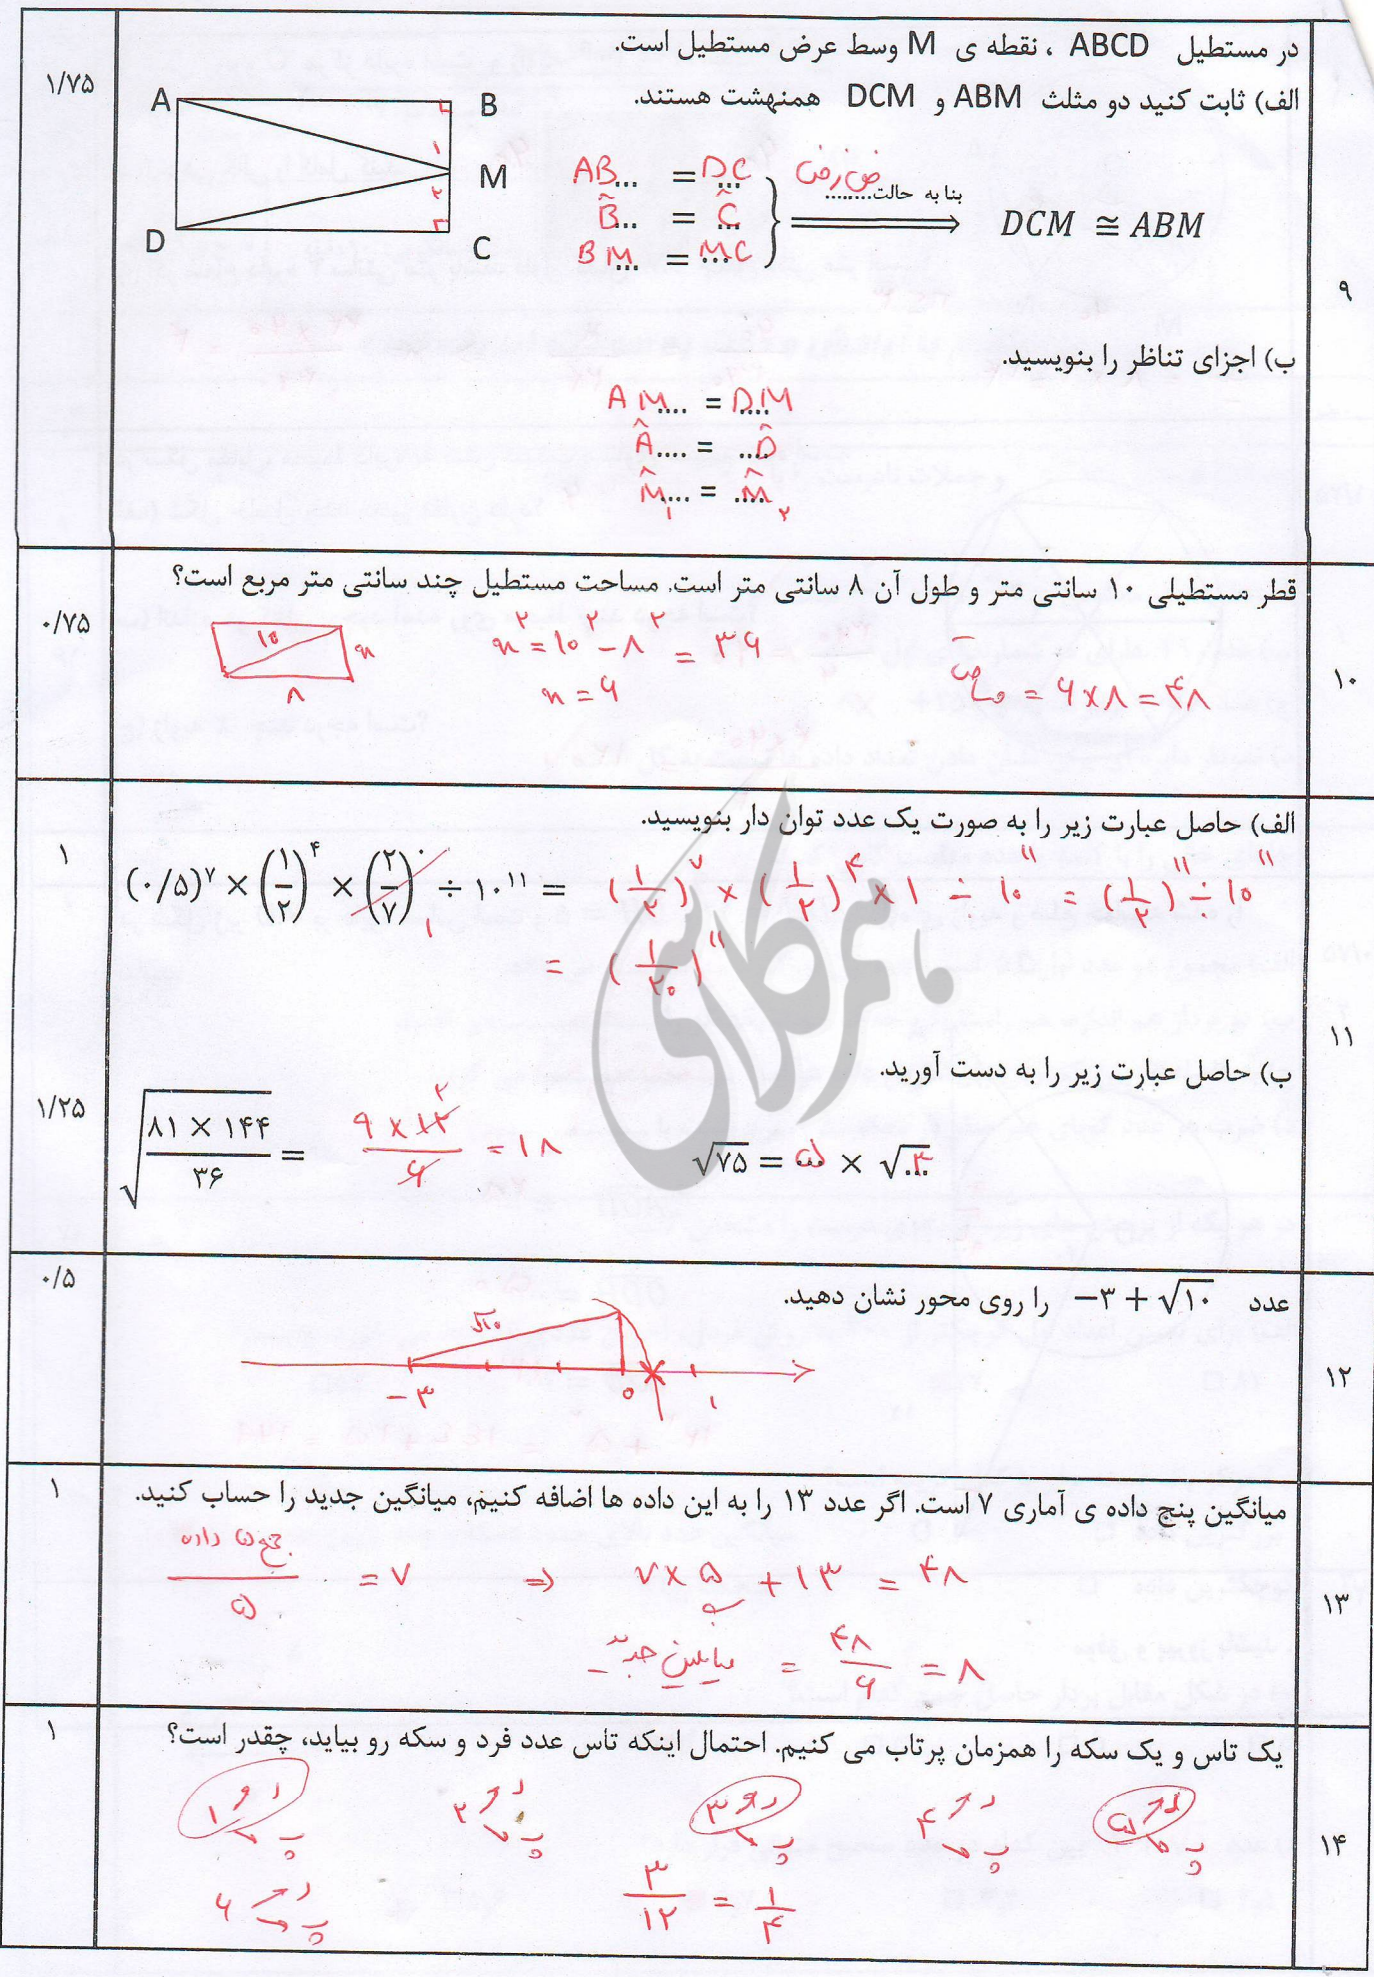 ۹
۱/۷۵
در مستطیل ABCD ، نقطه ی M وسط عرض مستطیل است.
الف) ثابت کنید دو مثلث ABM و DCM همنهشت هستند.
A B
M
D C
۱
۲
AB... = DC...
B̂... = Ĉ...
BM... = MC...
بنا به حالت ض‌زض........
DCM ≅ ABM
ب) اجزای تناظر را بنویسید.
AM.... = DM....
Â.... = D̂....
M̂₁.... = M̂₂....
۱۰
۰/۷۵
قطر مستطیلی ۱۰ سانتی متر و طول آن ۸ سانتی متر است. مساحت مستطیل چند سانتی متر مربع است؟
۱۰ x
۸
x² = ۱۰² − ۸² = ۳۶
x = ۶
مساحت = ۶ × ۸ = ۴۸
۱۱
۱
الف) حاصل عبارت زیر را به صورت یک عدد توان دار بنویسید.
(۰/۵)⁷ × (۱/۲)⁴ × (۲/۷)⁰ ÷ ۱۰¹¹ = (۱/۲)⁷ × (۱/۲)⁴ × ۱ ÷ ۱۰¹¹ = (۱/۲)¹¹ ÷ ۱۰¹¹
۱
= (۱/۲۰)¹¹
۱/۲۵
ب) حاصل عبارت زیر را به دست آورید.
√(۸۱ × ۱۴۴ / ۳۶) = ۹ × ۱۲ / ۶ = ۱۸
۲
√۷۵ = ۵... × √۳...
۱۲
۰/۵
عدد −۳ + √۱۰ را روی محور نشان دهید.
√۱۰
−۳ ۰ ۱
۱۳
۱
میانگین پنج داده ی آماری ۷ است. اگر عدد ۱۳ را به این داده ها اضافه کنیم، میانگین جدید را حساب کنید.
جمع ۵ داده / ۵ = ۷ ⇒ ۷ × ۵ + ۱۳ = ۴۸
میانگین جدید = ۴۸/۶ = ۸
۱۴
۱
یک تاس و یک سکه را همزمان پرتاب می کنیم. احتمال اینکه تاس عدد فرد و سکه رو بیاید، چقدر است؟
۱ ر پ
۲ ر پ
۳ ر پ
۴ ر پ
۵ ر پ
۶ ر پ
۳/۱۲ = ۱/۴
هم کلاسی ما